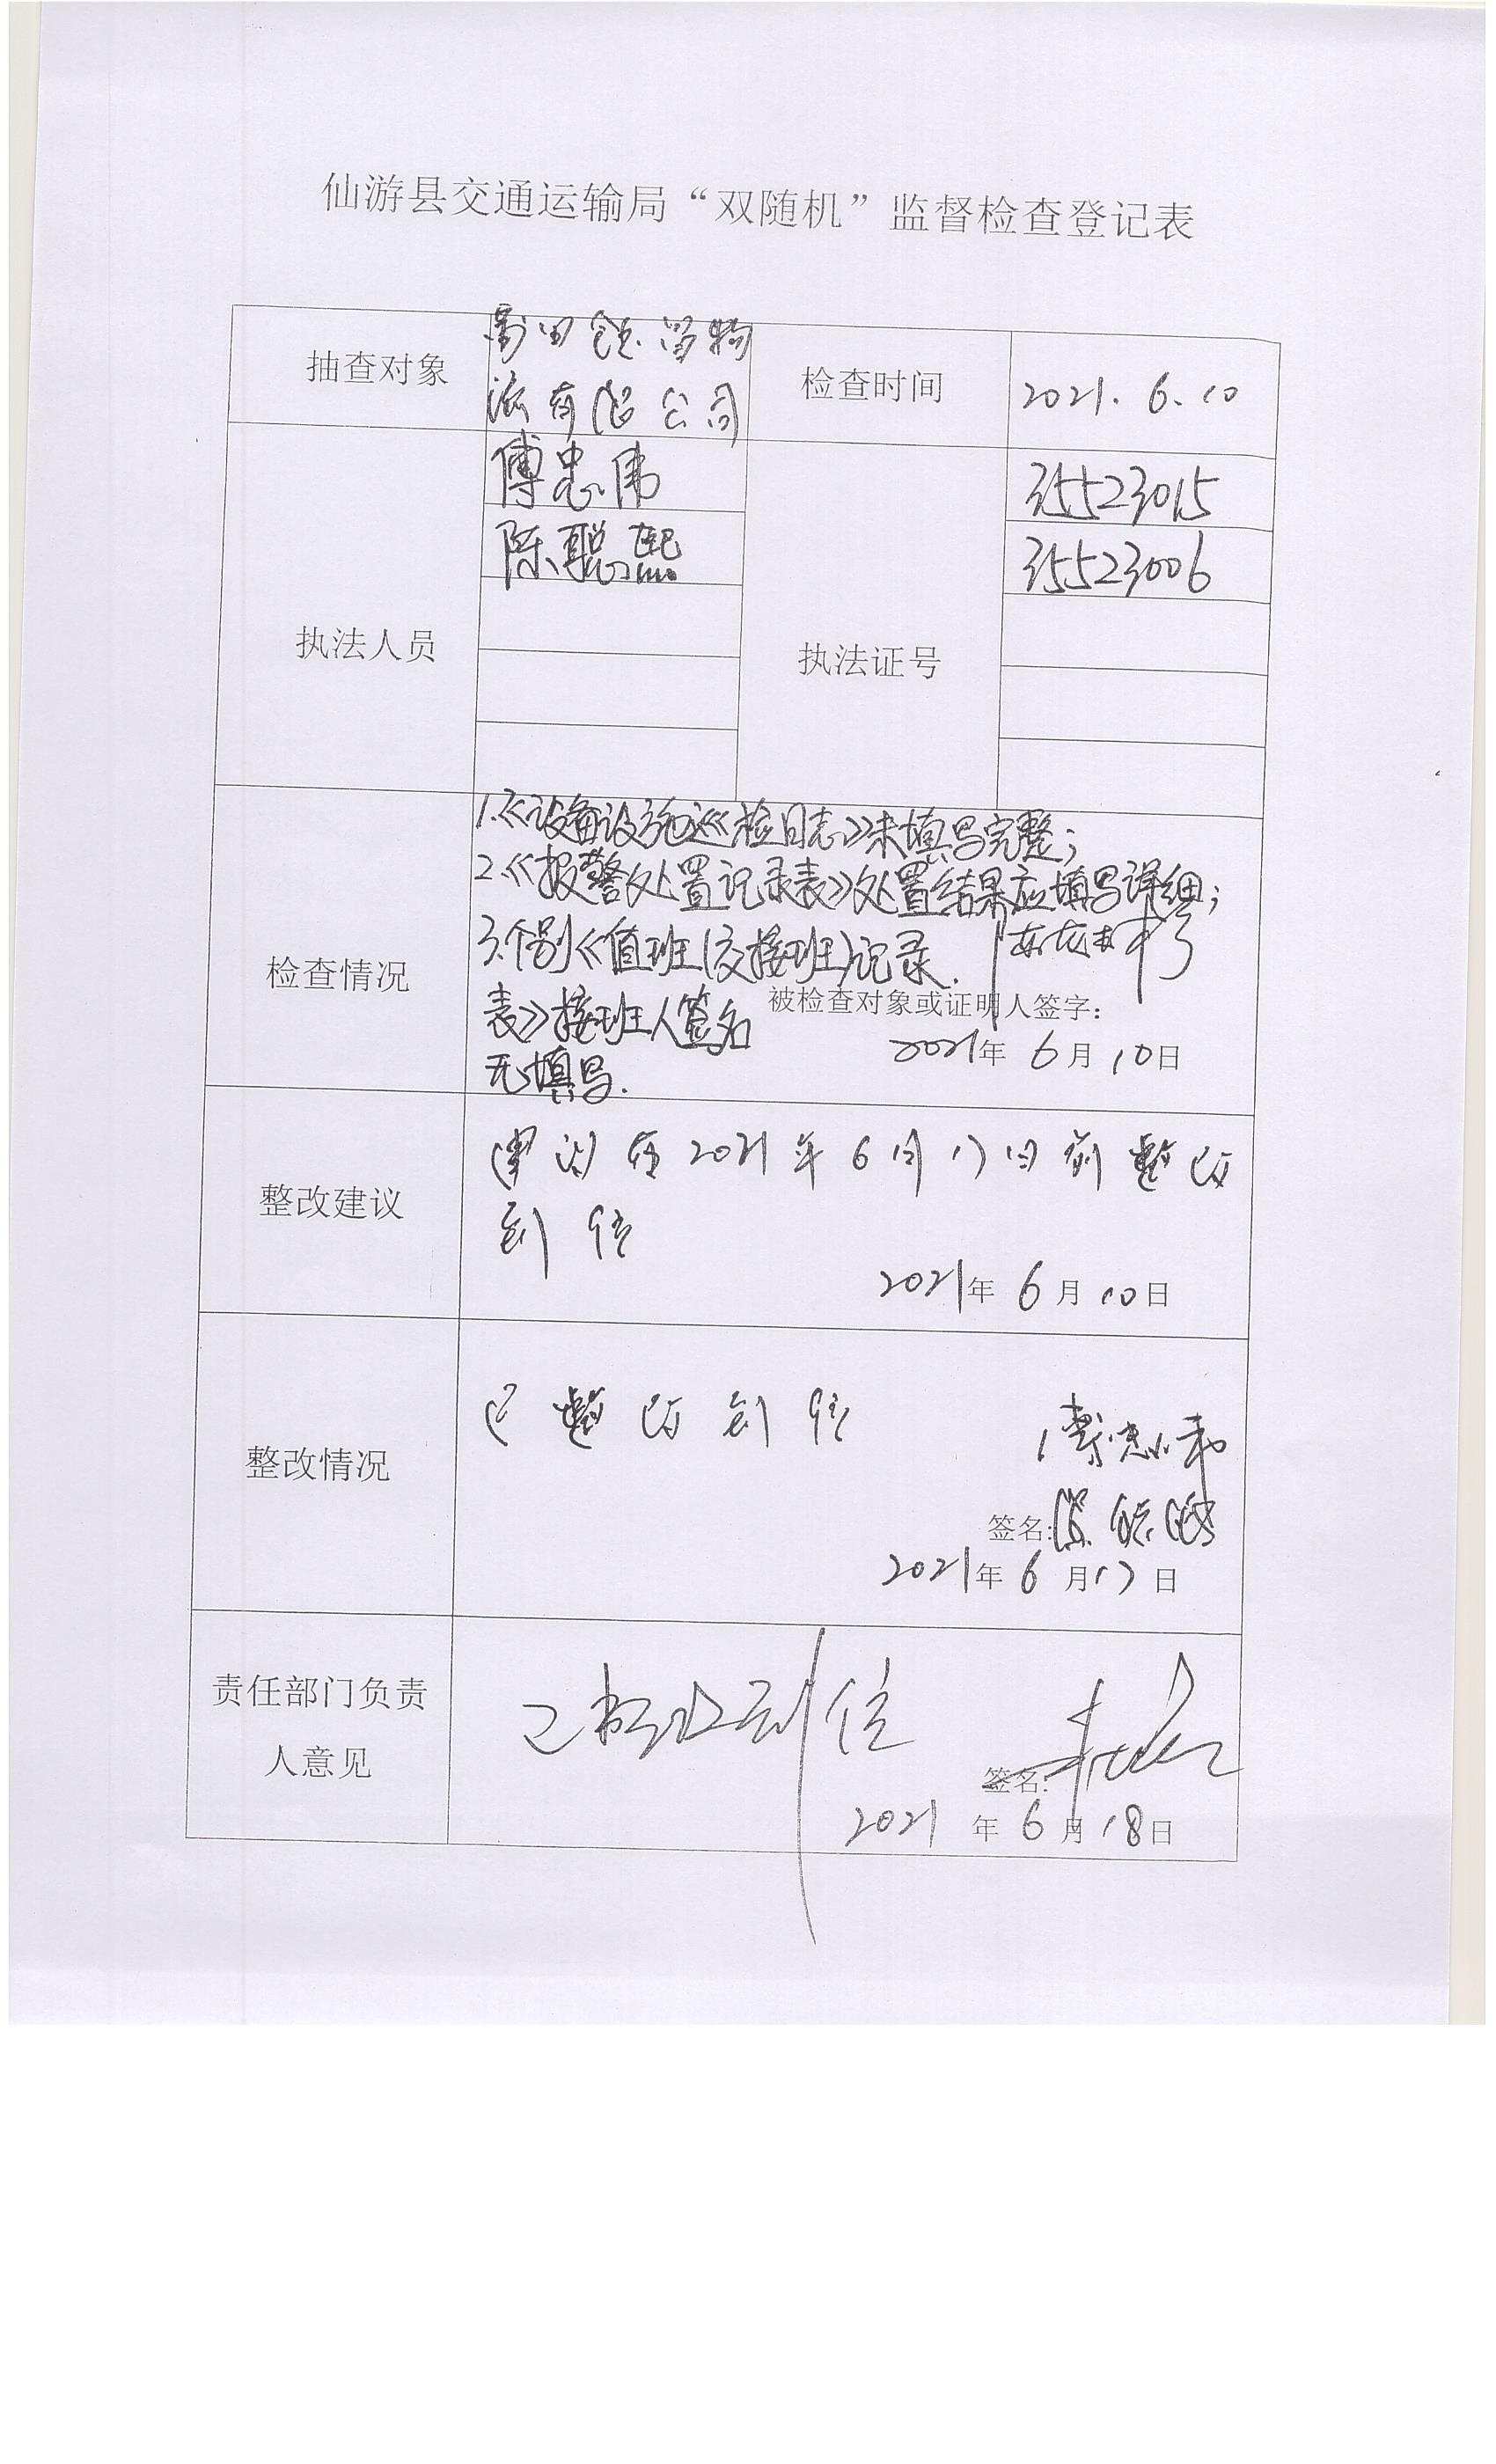 仙游县交通运输局“双随机”监督检查登记表
抽查对象
莆田 物
流有限公司
检查时间
2021.6.10
执法人员
傅忠伟
陈聪熙
执法证号
35523015
35523006
检查情况
1.《设备设施巡检日志》未填写完整;
2.《报警处置记录表》处置结果应填写详细;
3.个别《值班(交接班)记录
表》接班人签名
无填写.
被检查对象或证明人签字:
2021年 6月 10日
整改建议
建议在2021年6月17日前整改
到位
2021年 6月 10日
整改情况
已整改到位
傅忠伟
签名: 陈聪熙
2021年 6月17日
责任部门负责
人意见
已整改到位
签名:
2021 年 6月 18日